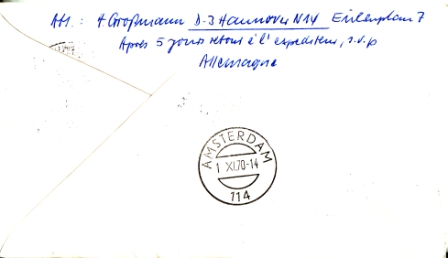 Abs.: A Großmann D-3 Hannover N14 Eichenplan 7
Après 5 jours retour à l'expediteur, s.v.p
Allemagne
AMSTERDAM
1 XI.70-14
114